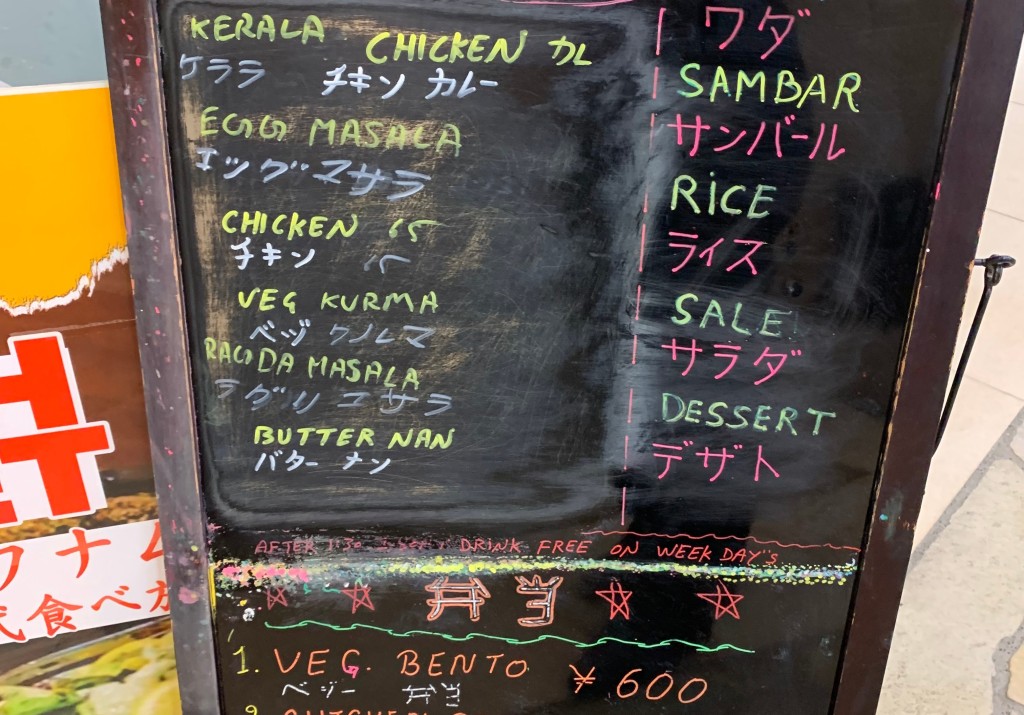 KERALA CHICKEN カレ
ケララ チキン カレー
EGG MASALA
エッグマサラ
CHICKEN 65
チキン 65
VEG KURMA
ベッヅ クノレマ
RAGDA MASALA
ラグリ エサラ
BUTTER NAN
バター ナン
ワダ
SAMBAR
サンバール
RiCE
ライス
SALE
サラダ
DESSERT
デザト
AFTER DRINK FREE ON WEEK DAY's
弁当
1. VEG. BENTO ¥600
ベジー 弁当
フナム
式食べ方